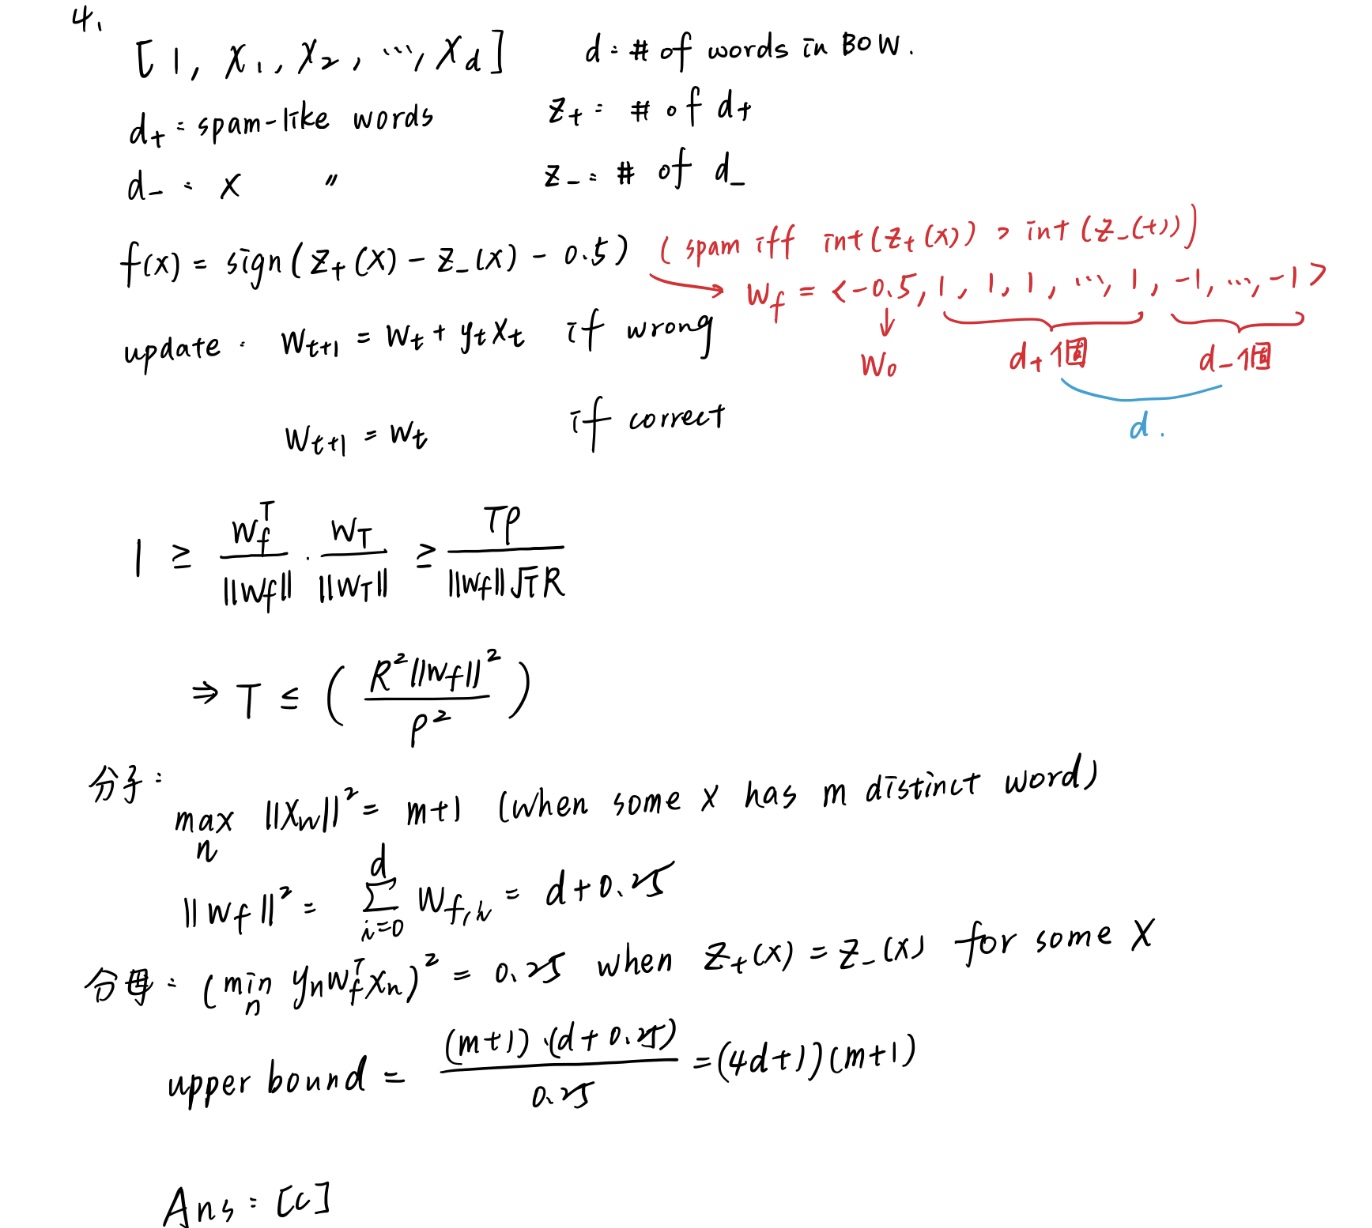 4.
[1, x₁, x₂, ..., x_d] d: # of words in BOW.
d₊: spam-like words z₊: # of d₊
d₋: x 〃 z₋: # of d_
f(x) = sign(z₊(x) - z₋(x) - 0.5) (spam iff int(z₊(x)) > int(z₋(t)))
→ w_f = <-0.5, 1, 1, 1, ..., 1, -1, ..., -1>
update: w_{t+1} = w_t + y_t x_t if wrong
↓ w₀ d₊個 d₋個
w_{t+1} = w_t if correct
d.
1 ≥ w_f^T / ||w_f|| · w_T / ||w_T|| ≥ Tρ / ||w_f||√T R
⇒ T ≤ ( R²||w_f||² / ρ² )
分子:
max_n ||x_w||² = m+1 (when some x has m distinct word)
||w_f||² = Σ_{i=0}^{d} w_{f,i} = d + 0.25
分母: (min_n y_n w_f^T x_n)² = 0.25 when z₊(x) = z₋(x) for some x
upper bound = (m+1)·(d+0.25) / 0.25 = (4d+1))(m+1)
Ans: [c]